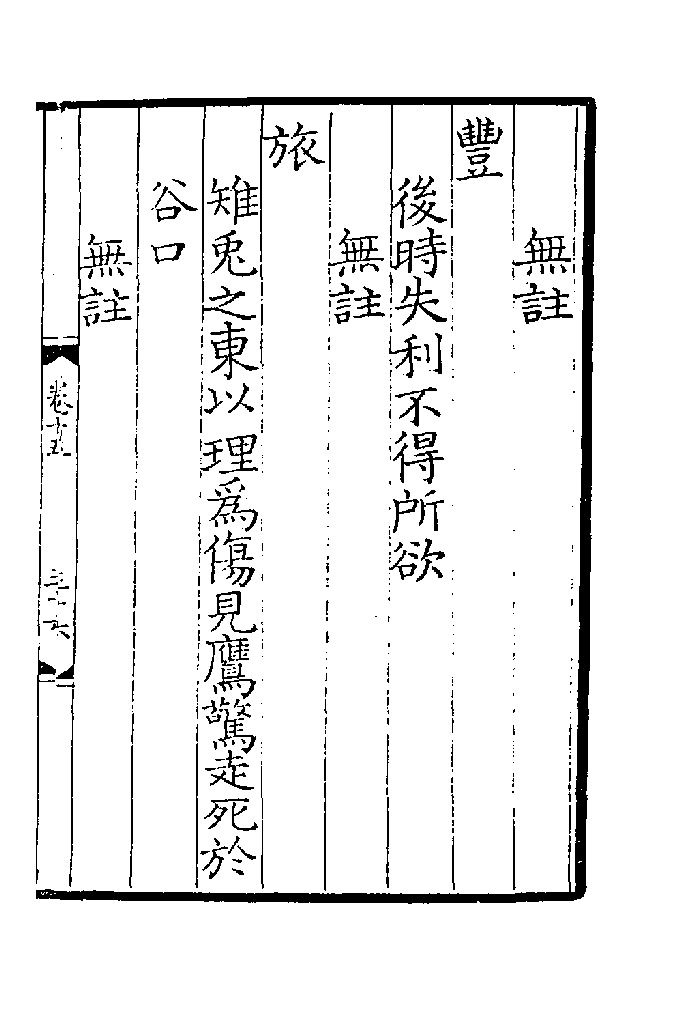 無註
豐
後時失利不得所欲
無註
旅
雉兎之東以理爲傷見鷹驚走死於
谷口
無註
卷十五
三十六